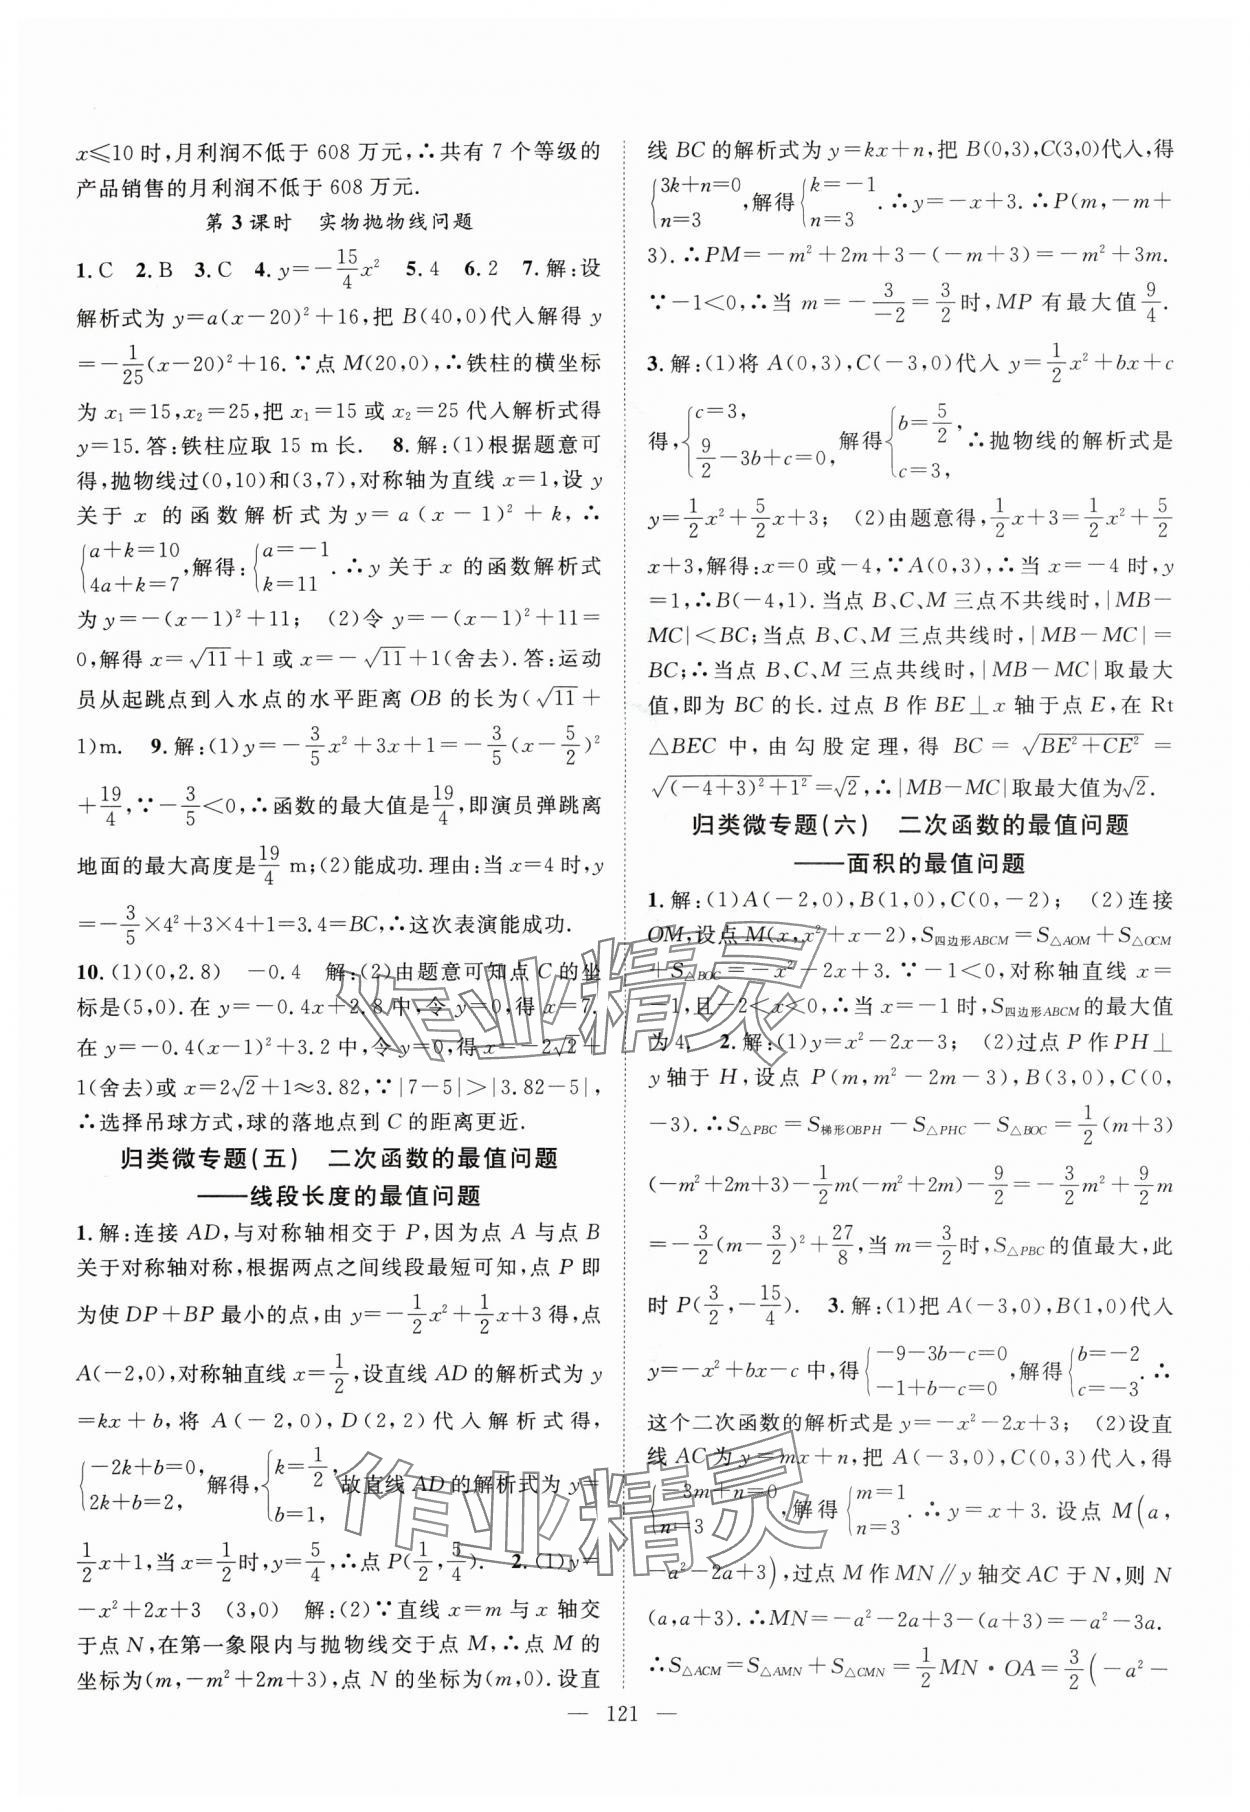 x≤10 时,月利润不低于 608 万元,∴共有 7 个等级的
产品销售的月利润不低于 608 万元.
第 3 课时　实物抛物线问题
1. C　2. B　3. C　4. y=-15/4x²　5. 4　6. 2　7. 解:设
解析式为 y=a(x-20)²+16,把 B(40,0)代入解得 y
=-1/25(x-20)²+16.∵点 M(20,0),∴铁柱的横坐标
为 x₁=15,x₂=25,把 x₁=15 或 x₂=25 代入解析式得
y=15. 答:铁柱应取 15 m 长.　8. 解:(1)根据题意可
得,抛物线过(0,10)和(3,7),对称轴为直线 x=1,设 y
关于 x 的函数解析式为 y=a(x-1)²+k,∴
{a+k=10 4a+k=7,解得:{a=-1 k=11.∴y 关于 x 的函数解析式
为 y=-(x-1)²+11;　(2)令-(x-1)²+11=
0,解得 x=√11+1 或 x=-√11+1(舍去).答:运动
员从起跳点到入水点的水平距离 OB 的长为(√11+
1)m.　9. 解:(1)y=-3/5x²+3x+1=-3/5(x-5/2)²
+19/4,∵-3/5<0,∴函数的最大值是19/4,即演员弹跳离
地面的最大高度是19/4 m;(2)能成功.理由:当 x=4 时,y
=-3/5×4²+3×4+1=3.4=BC,∴这次表演能成功.
10. (1)(0,2.8)　-0.4　解:(2)由题意可知点 C 的坐
标是(5,0).在 y=-0.4x+2.8 中,令 y=0,得 x=7.
在 y=-0.4(x-1)²+3.2 中,令 y=0,得 x=-2√2+
1(舍去)或 x=2√2+1≈3.82,∵|7-5|>|3.82-5|,
∴选择吊球方式,球的落地点到 C 的距离更近.
归类微专题(五)　二次函数的最值问题
——线段长度的最值问题
1. 解:连接 AD,与对称轴相交于 P,因为点 A 与点 B
关于对称轴对称,根据两点之间线段最短可知,点 P 即
为使 DP+BP 最小的点,由 y=-1/2x²+1/2x+3 得,点
A(-2,0),对称轴直线 x=1/2,设直线 AD 的解析式为 y
=kx+b,将 A(-2,0),D(2,2)代入解析式得,
{-2k+b=0, 2k+b=2,解得,{k=1/2, b=1,故直线 AD 的解析式为 y=
1/2x+1,当 x=1/2时,y=5/4,∴点 P(1/2,5/4).　2. (1)y=
-x²+2x+3　(3,0)　解:(2)∵直线 x=m 与 x 轴交
于点 N,在第一象限内与抛物线交于点 M,∴点 M 的
坐标为(m,-m²+2m+3),点 N 的坐标为(m,0).设直
线 BC 的解析式为 y=kx+n,把 B(0,3),C(3,0)代入,得
{3k+n=0 n=3,解得{k=-1 n=3.∴y=-x+3.∴P(m,-m+
3).∴PM=-m²+2m+3-(-m+3)=-m²+3m.
∵-1<0,∴当 m=-3/-2=3/2时,MP 有最大值9/4.
3. 解:(1)将 A(0,3),C(-3,0)代入 y=1/2x²+bx+c
得,{c=3, 9/2-3b+c=0,解得{b=5/2, c=3,∴抛物线的解析式是
y=1/2x²+5/2x+3;　(2)由题意得,1/2x+3=1/2x²+5/2
x+3,解得:x=0 或-4,∵A(0,3),∴当 x=-4 时,y
=1,∴B(-4,1).当点 B、C、M 三点不共线时,|MB-
MC|<BC;当点 B、C、M 三点共线时,|MB-MC|=
BC;∴当点 B、C、M 三点共线时,|MB-MC|取最大
值,即为 BC 的长.过点 B 作 BE⊥x 轴于点 E,在 Rt
△BEC 中,由勾股定理,得 BC=√(BE²+CE²)=
√((-4+3)²+1²)=√2,∴|MB-MC|取最大值为√2.
归类微专题(六)　二次函数的最值问题
——面积的最值问题
1. 解:(1)A(-2,0),B(1,0),C(0,-2);　(2)连接
OM,设点 M(x,x²+x-2),S四边形ABCM=S△AOM+S△OCM
+S△BOC=-x²-2x+3.∵-1<0,对称轴直线 x=
-1,且-2<x<0,∴当 x=-1 时,S四边形ABCM的最大值
为 4.　2. 解:(1)y=x²-2x-3;　(2)过点 P 作 PH⊥
y 轴于 H,设点 P(m,m²-2m-3),B(3,0),C(0,
-3).∴S△PBC=S梯形OBPH-S△PHC-S△BOC=1/2(m+3)
(-m²+2m+3)-1/2m(-m²+2m)-9/2=-3/2m²+9/2m
=-3/2(m-3/2)²+27/8,当 m=3/2时,S△PBC的值最大,此
时 P(3/2,-15/4).　3. 解:(1)把 A(-3,0),B(1,0)代入
y=-x²+bx-c 中,得{-9-3b-c=0 -1+b-c=0,解得{b=-2 c=-3.∴
这个二次函数的解析式是 y=-x²-2x+3;　(2)设直
线 AC 为 y=mx+n,把 A(-3,0),C(0,3)代入,得
{-3m+n=0 n=3,解得{m=1 n=3.∴y=x+3.设点 M(a,
-a²-2a+3),过点 M 作 MN∥y 轴交 AC 于 N,则 N
(a,a+3).∴MN=-a²-2a+3-(a+3)=-a²-3a.
∴S△ACM=S△AMN+S△CMN=1/2MN·OA=3/2(-a²-
— 121 —
作业精灵
作业精灵